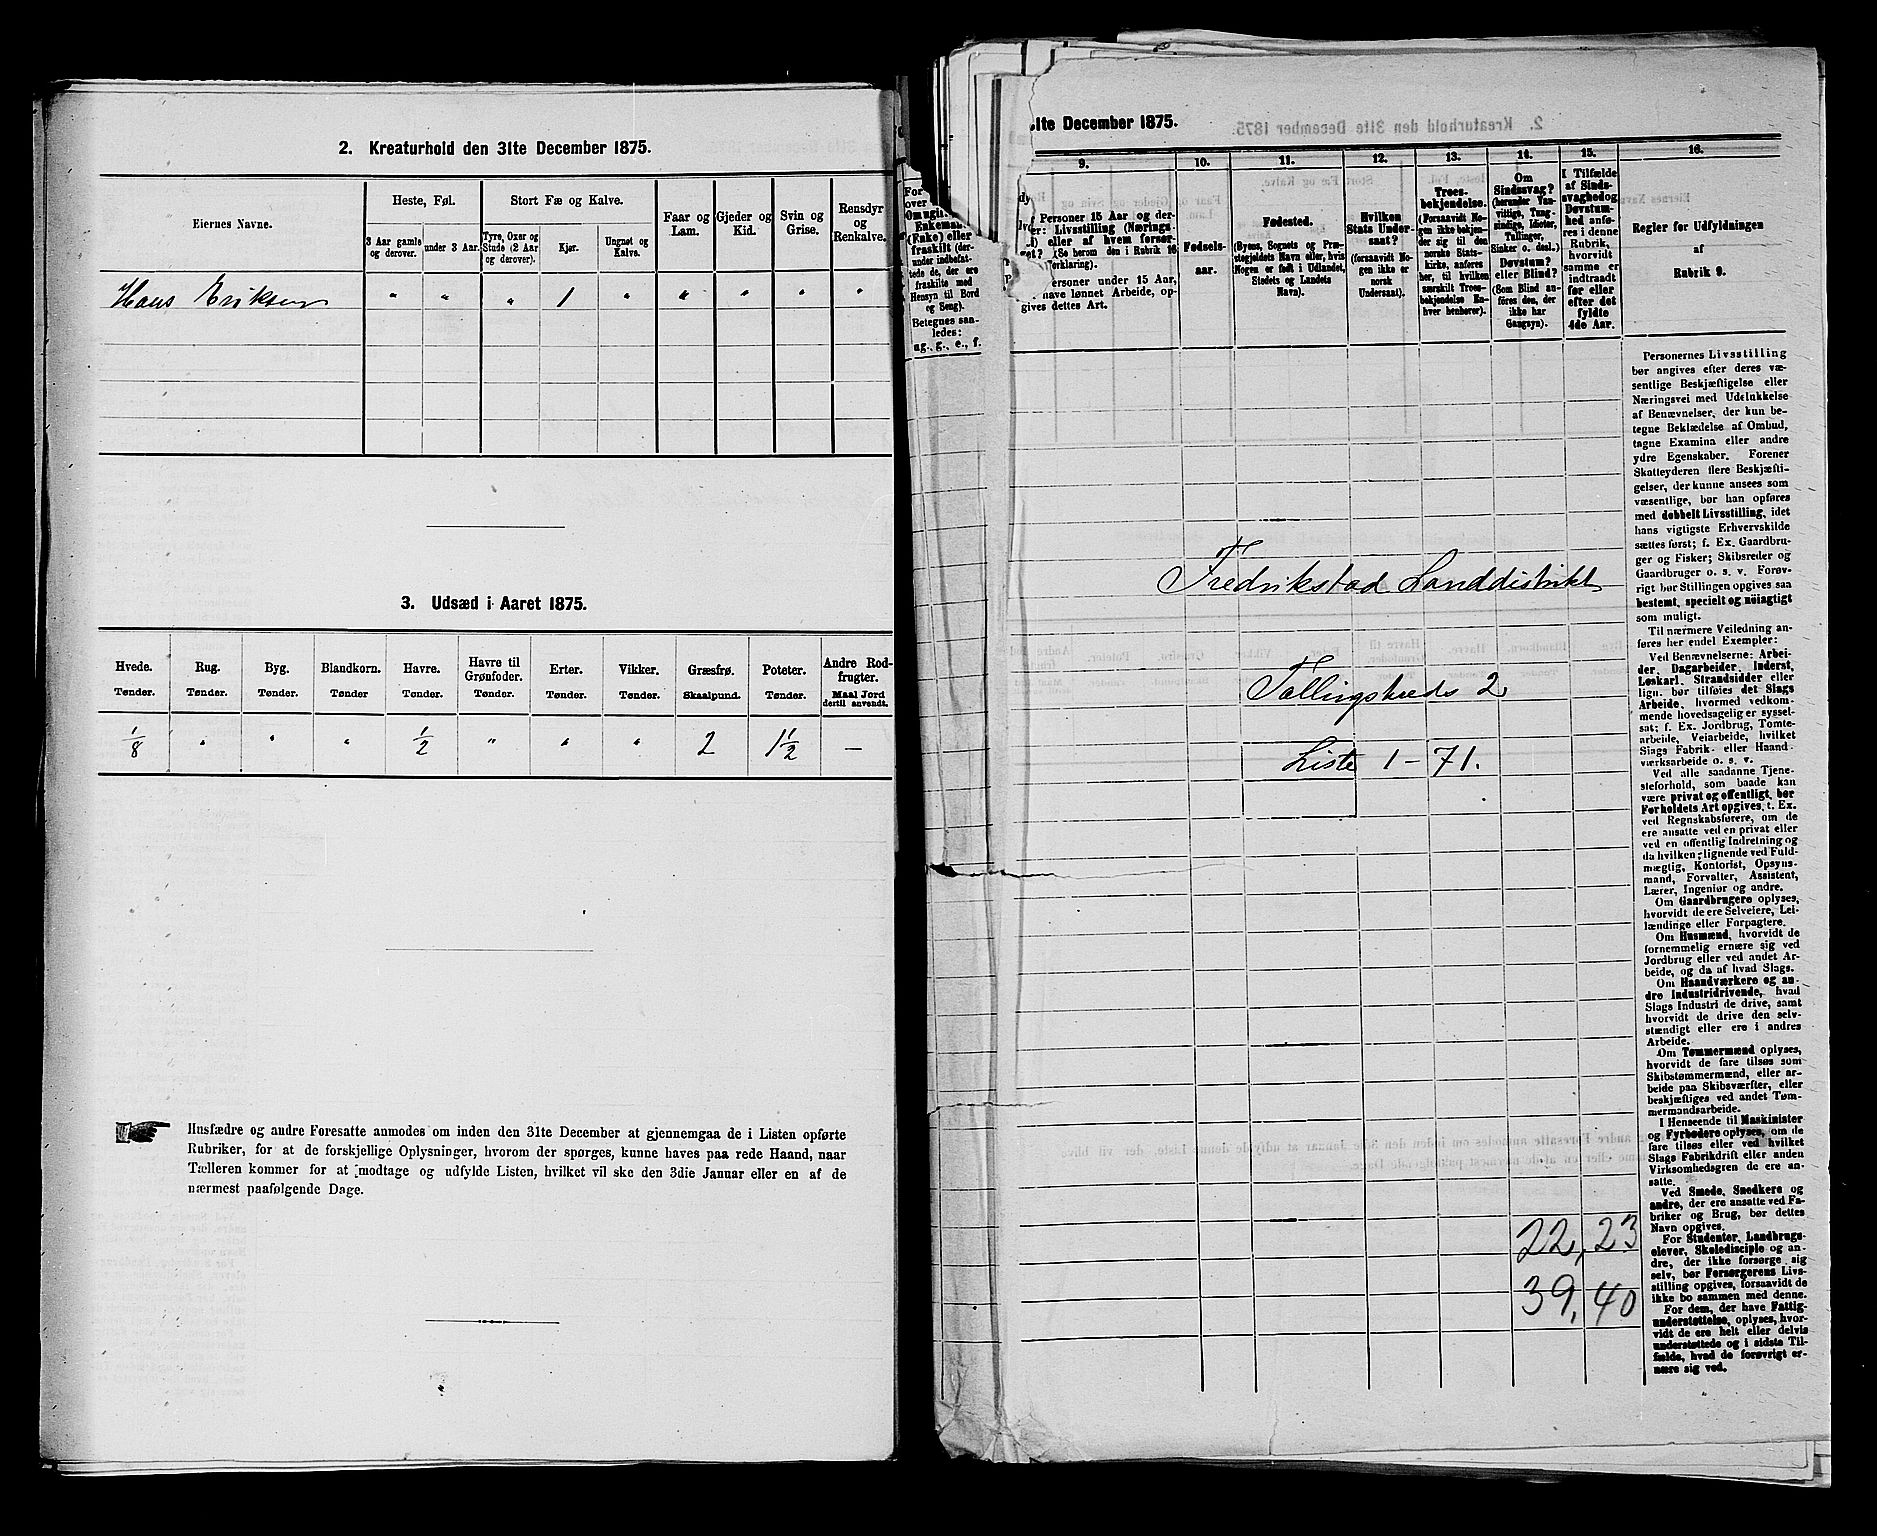 2. Kreaturhold den 31te December 1875.
Eiernes Navne.
Heste, Føl.
3 Aar gamle og derover.
under 3 Aar.
Stort Fæ og Kalve.
Tyre, Oxer og Stude (2 Aar og derover).
Kjør.
Ungnøt og Kalve.
Faar og Lam.
Gjeder og Kid.
Svin og Grise.
Rensdyr og Renkalve.
Hans Eriksen " " " 1 " " " " "
3. Udsæd i Aaret 1875.
Hvede. Rug. Byg. Blandkorn. Havre. Havre til Grønfoder. Erter. Vikker. Græsfrø. Poteter. Andre Rodfrugter.
Tønder. Tønder. Tønder. Tønder Tønder. Tønder. Tønder. Tønder. Skaalpund. Tønder. Maal Jord dertil anvendt.
1/8 " " " 1/2 " " " 2 1 1/2 —
Husfædre og andre Foresatte anmodes om inden den 31te December at gjennemgaa de i Listen opførte
Rubriker, for at de forskjellige Oplysninger, hvorom der spørges, kunne haves paa rede Haand, naar
Tælleren kommer for at modtage og udfylde Listen, hvilket vil ske den 3die Januar eller en af de
nærmest paafølgende Dage.
ag., g., e., f.
31te December 1875.
9. 10. 11. 12. 13. 14. 15. 16.
Personer 15 Aar og der-
Livsstilling (Nærings-
eller af hvem forsør-
(Se herom den i Rubrik 16
gives dettes Art.
Fødsels-
aar.
Fødested.
(Byens, Sognets og Præ-
stegjeldets Navn eller, hvis
Nogen er født i Udlandet,
Stedets og Landets
Navn).
Hvilken
Stats Under-
saat?
(forsaavidt No-
gen ikke er
norsk
Undersaat).
Troes-
bekjendelse.
(Forsaavidt No-
gen ikke bekjen-
der sig til den
norske Stats-
kirke, anføres
her, til hvilken
særskilt Troes-
bekjendelse En-
hver henhører).
Om
Sindssvag?
(herunder Van-
vittige, Tung-
sindige, Idioter,
Tullinger,
Sinker o. desl.)
Døvstum?
eller Blind?
(Som Blind an-
føres den, der
ikke har
Gangsyn).
I Tilfælde
af Sinds-
svaghed og
Døvstum-
hed anfø-
res i denne
Rubrik,
hvorvidt
samme er
indtraadt
før eller
efter det
fyldte
4de Aar.
Regler for Udfyldningen
af
Rubrik 9.
Fredrikstad Landdistrikt
Tællingskreds 2
Liste 1 – 71.
22, 23
39, 40
Personernes Livsstilling
bør angives efter deres væ-
sentlige Beskjæftigelse eller
Næringsvei med Udelukkelse
af Benævnelser, der kun be-
tegne Beklædelse af Ombud,
tagne Examina eller andre
ydre Egenskaber. Forener
Skatteyderen flere Beskjæfti-
gelser, der kunne ansees som
væsentlige, bør han opføres
med dobbelt Livsstilling, idet
hans vigtigste Erhvervskilde
sættes først; f. Ex. Gaardbru-
ger og Fisker; Skibsreder og
Gaardbruger o. s. v. Forøv-
rigt bør Stillingen opgives saa
bestemt, specielt og nøiagtigt
som muligt.
Til nærmere Veiledning an-
føres her endel Exempler:
Ved Benævnelserne: Arbei-
der, Dagarbeider, Inderst,
Løskarl, Strandsidder eller
lign. bør tilføies det Slags
Arbeide, hvormed vedkom-
mende hovedsagelig er syssel-
sat; f. Ex. Jordbrug, Tomte-
arbeide, Veiarbeide, hvilket
Slags Fabrik- eller Haand-
værksarbeide o. s. v.
Ved alle saadanne Tjene-
steforhold, som baade kan
være privat og offentligt, bør
Forholdets Art opgives, t. Ex.
ved Regnskabsførere, om de
ere ansatte ved en privat eller
ved en offentlig Indretning og
da hvilken; lignende ved Fuld-
mægtig, Kontorist, Opsyns-
mand, Forvalter, Assistent,
Lærer, Ingeniør og andre.
Om Gaardbrugere oplyses,
hvorvidt de ere Selveiere, Lei-
lændinge eller Forpagtere.
Om Husmænd, hvorvidt de
fornemmelig ernære sig ved
Jordbrug eller ved andet Ar-
beide, og da af hvad Slags.
Om Haandværkere og an-
dre Industridrivende, hvad
Slags Industri de drive, samt
hvorvidt de drive den selv-
stændigt eller ere i andres
Arbeide.
Om Tømmermænd oplyses,
hvorvidt de fare tilsøs som
Skibstømmermænd, eller ar-
beide paa Skibsværfter, eller
beskjæftiges ved andet Tøm-
mermandsarbeide.
I Henseende til Maskinister
og Fyrbødere oplyses, om de
fare tilsøs eller ved hvilket
Slags Fabrikdrift eller anden
Virksomhedsgren de ere an-
satte.
Ved Smede, Snedkere og
andre, der ere ansatte ved Fa-
briker og Brug, bør dettes
Navn opgives.
For Studenter, Landbrugs-
elever, Skoledisciple og an-
dre, der ikke forsørge sig
selv, bør Forsørgerens Livs-
stilling opgives, forsaavidt de
ikke bo sammen med denne.
For dem, der have Fattig-
understøttelse, oplyses, hvor-
vidt de ere helt eller delvis
understøttede og i sidste Til-
fælde, hvad de forøvrigt er-
nære sig ved.